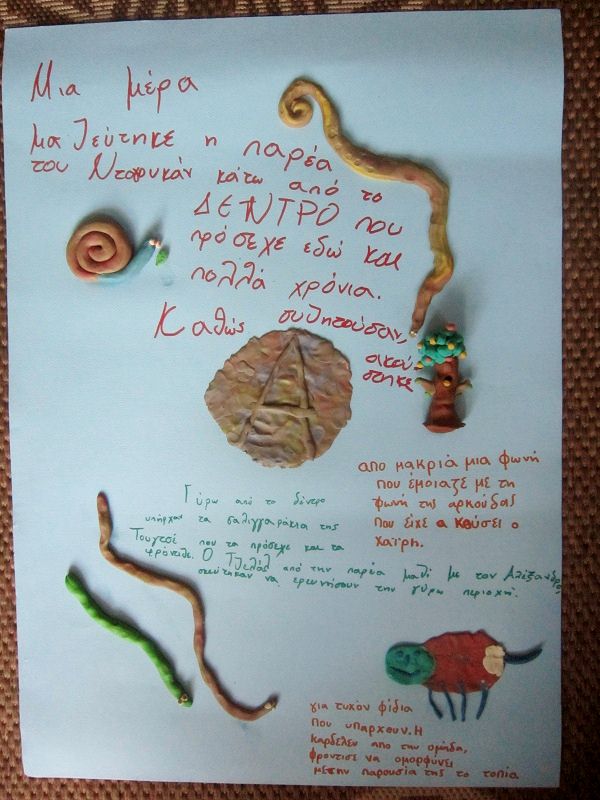 Μια μέρα
μαζεύτηκε η παρέα
του Ντογυκάν κάτω από το
ΔΕΝΤΡΟ που
πρόσεχε εδώ και
πολλά χρόνια.
Καθώς συζητούσαν,
ακού
στηκε
Α
απο μακριά μια φωνή
που έμοιαζε με τη
φωνή της αρκούδας
που είχε ακούσει ο
Χαϊρή.
Γύρω από το δέντρο
υπήρχαν τα σαλιγγαράκια της
Τουγτσέ που τα πρόσεχε και τα
φρόντιζε. Ο Τζελάλ από την παρέα μαζί με τον Αλέξανδρο
σκεύτηκαν να ερευνήσουν την γύρω περιοχή.
για τυχόν φίδια
που υπαρχουν. Η
Καρδελέν απο την ομήδα,
φροντισε να ομορφύνει
με την παρουσία της το τοπία